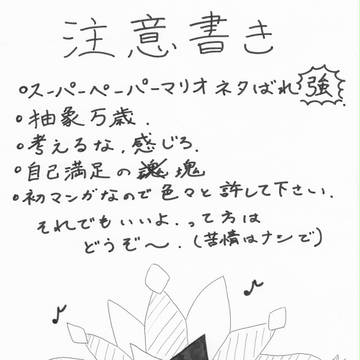 注意書き
○スーパーペーパーマリオネタばれ強
○抽象万歳.
○考えるな,感じろ.
○自己満足の塊
○初マンガなので色々と許して下さい.
それでもいいよ.って方は
どうぞ〜.(苦情はナシで)